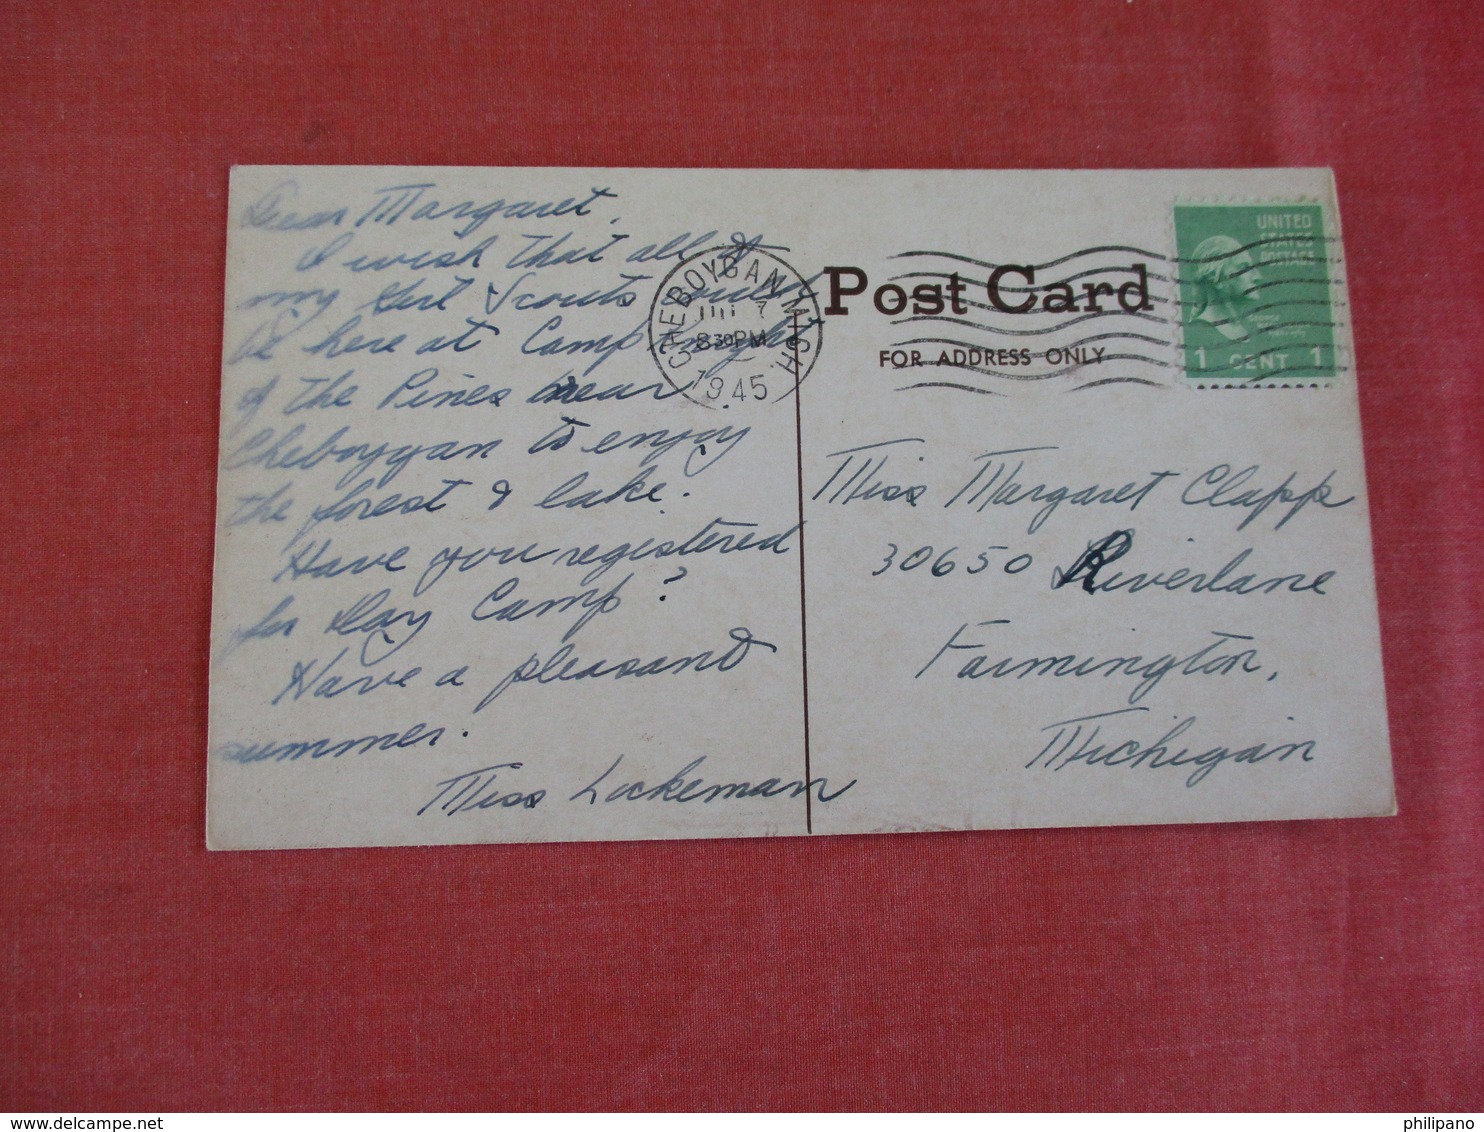 Dear Margaret,
I wish that all of
my Girl Scouts could
be here at Camp Knight
of the Pines near
Cheboygan to enjoy
the forest & lake.
Have you registered
for Day Camp?
Have a pleasant
summer.
Miss Lockeman
CHEBOYGAN MICH.
7
8 30 PM
1945
Post Card
FOR ADDRESS ONLY
UNITED
STATES
POSTAGE
1 CENT 1
Miss Margaret Clapp
30650 Riverlane
Farmington,
Michigan
philipano